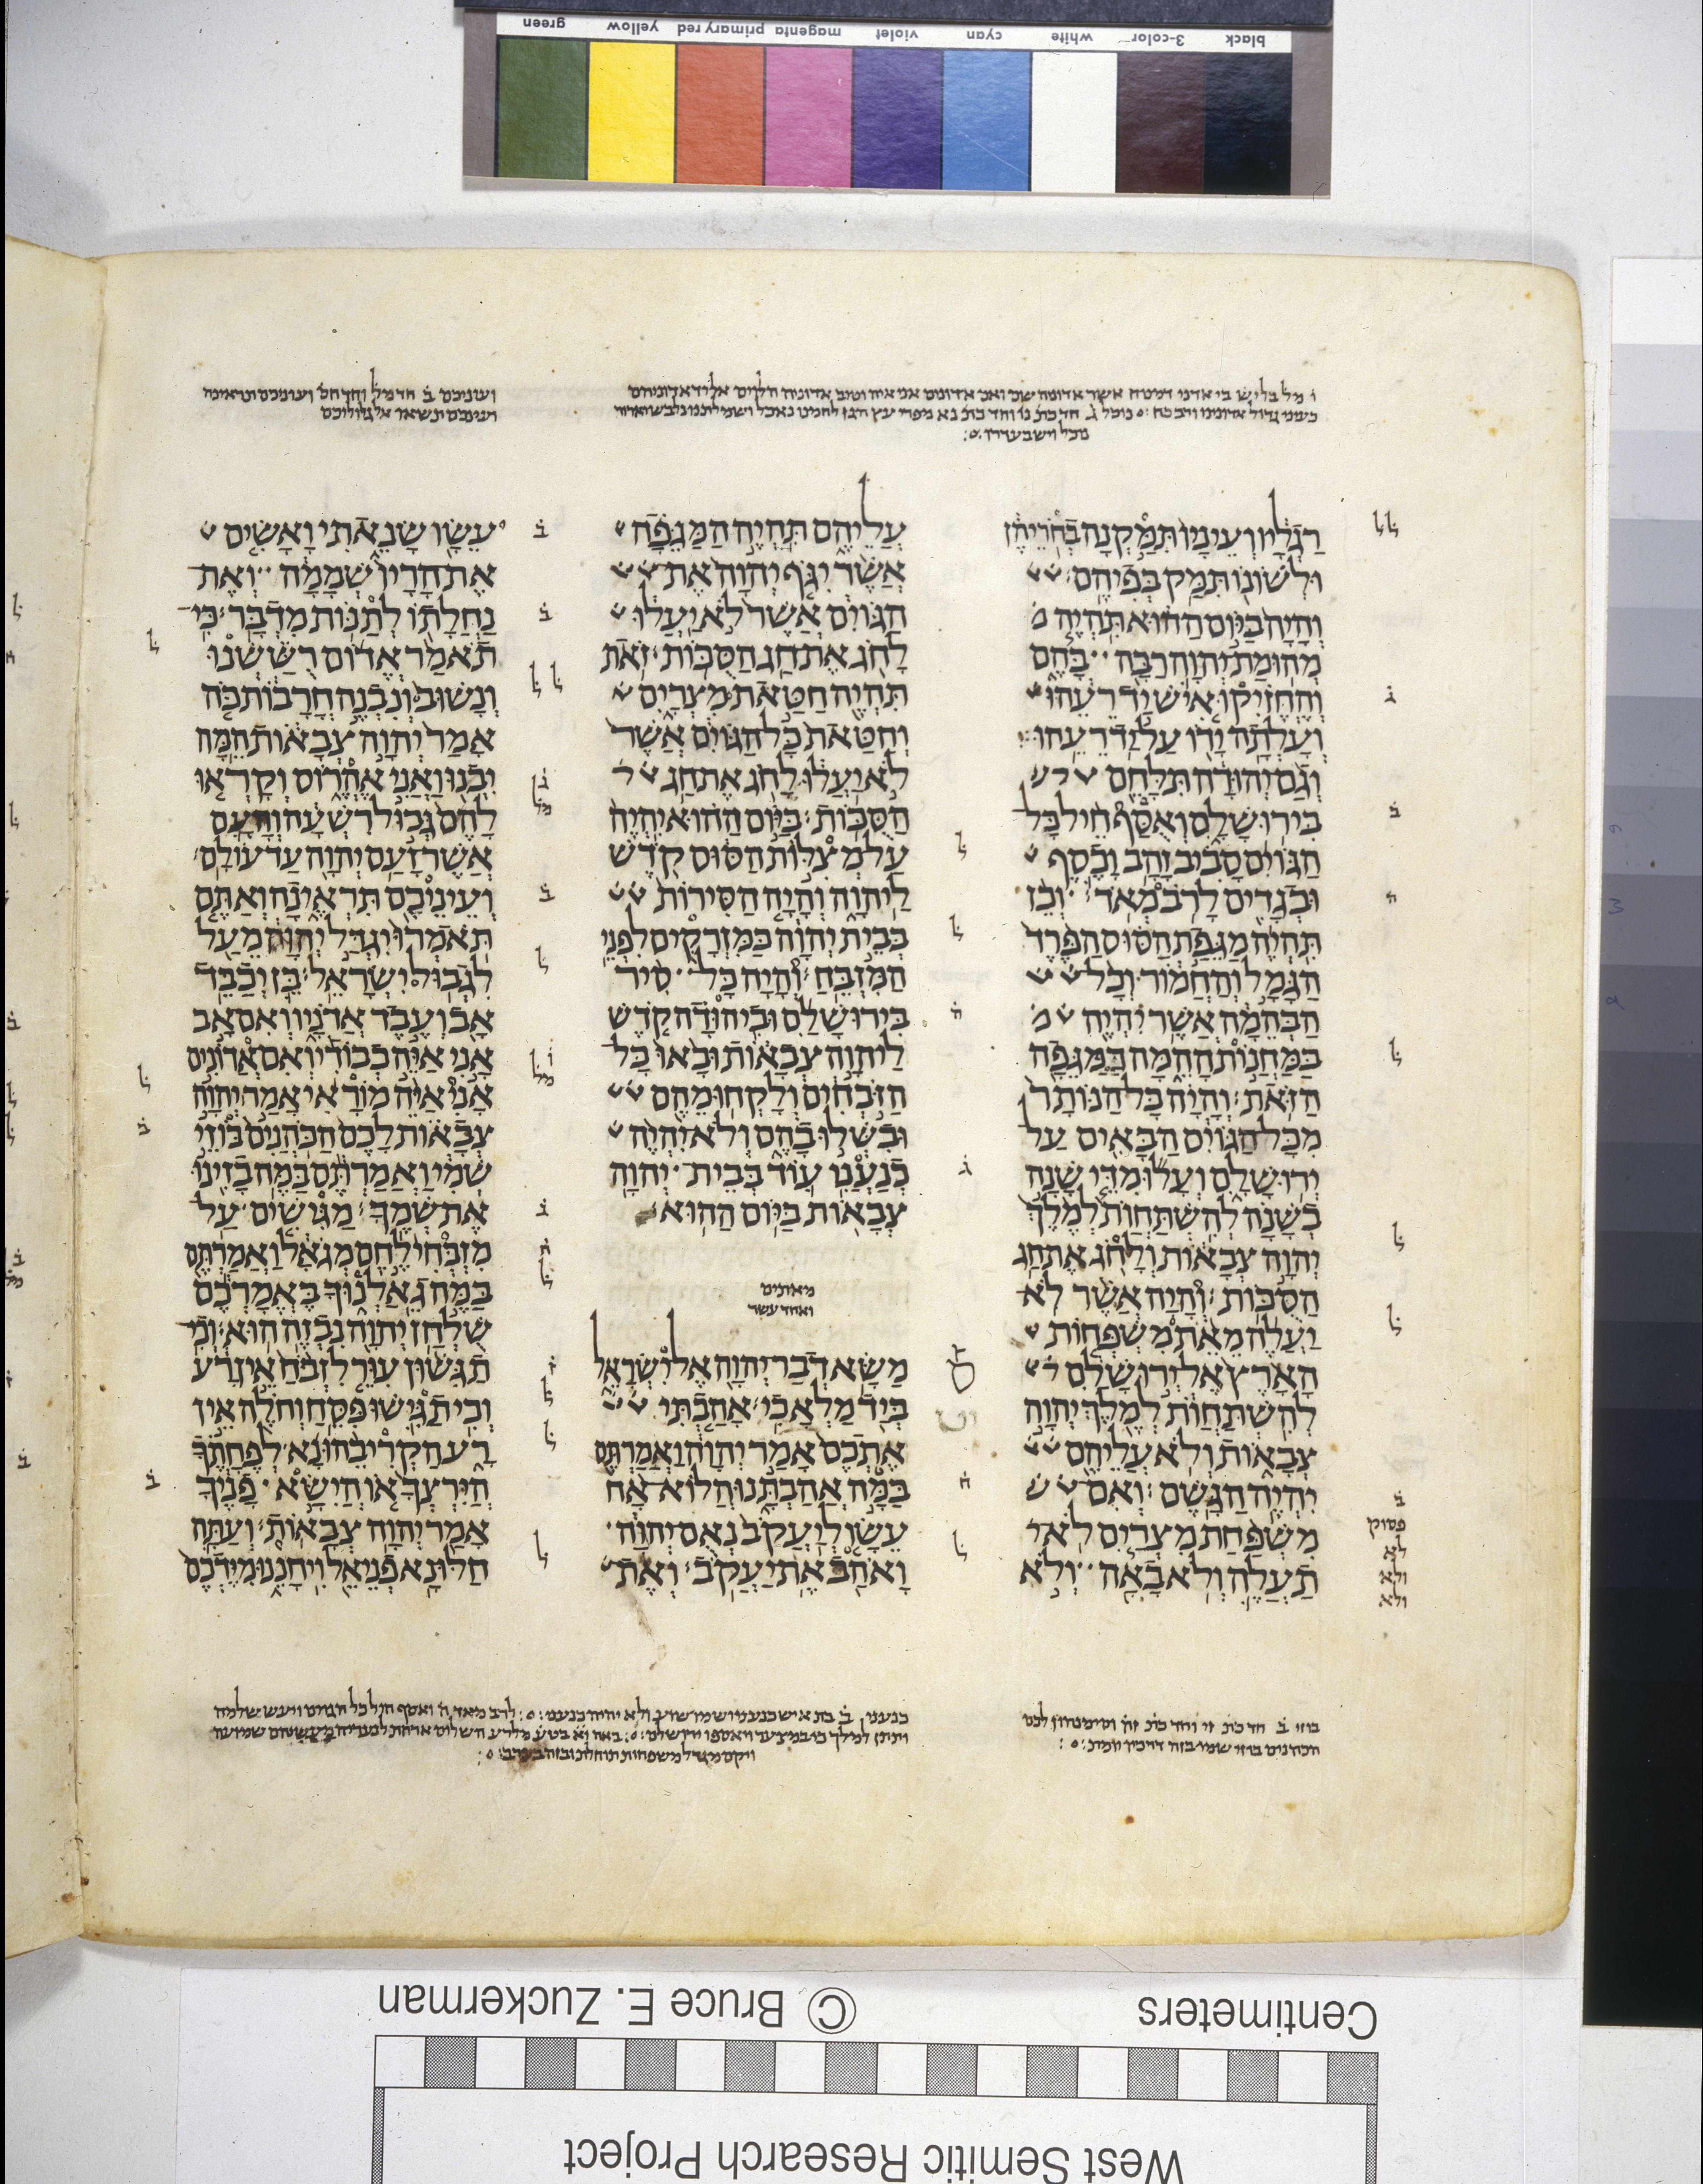 black 3-color white cyan violet magenta primary red yellow green
רַגְלָיו וְעֵינָיו תִּמַּקְנָה בְחֹרֵיהֶן
וּלְשׁוֹנוֹ תִּמַּק בְּפִיהֶם׃
וְהָיָה בַּיּוֹם הַהוּא תִּהְיֶה
מְהוּמַת יְהוָה רַבָּה בָּהֶם
וְהֶחֱזִיקוּ אִישׁ יַד רֵעֵהוּ
וְעָלְתָה יָדוֹ עַל יַד רֵעֵהוּ׃
וְגַם יְהוּדָה תִּלָּחֵם
בִּירוּשָׁלָ͏ִם וְאֻסַּף חֵיל כָּל
הַגּוֹיִם סָבִיב זָהָב וָכֶסֶף
וּבְגָדִים לָרֹב מְאֹד׃ וְכֵן
תִּהְיֶה מַגֵּפַת הַסּוּס הַפֶּרֶד
הַגָּמָל וְהַחֲמוֹר וְכָל
הַבְּהֵמָה אֲשֶׁר יִהְיֶה
בַּמַּחֲנוֹת הָהֵמָּה כַּמַּגֵּפָה
הַזֹּאת׃ וְהָיָה כָּל הַנּוֹתָר
מִכָּל הַגּוֹיִם הַבָּאִים עַל
יְרוּשָׁלָ͏ִם וְעָלוּ מִדֵּי שָׁנָה
בְשָׁנָה לְהִשְׁתַּחֲוֹת לְמֶלֶךְ
יְהוָה צְבָאוֹת וְלָחֹג אֶת חַג
הַסֻּכּוֹת׃ וְהָיָה אֲשֶׁר לֹא
יַעֲלֶה מֵאֵת מִשְׁפְּחוֹת
הָאָרֶץ אֶל יְרוּשָׁלַ͏ִם
לְהִשְׁתַּחֲוֹת לְמֶלֶךְ יְהוָה
צְבָאוֹת וְלֹא עֲלֵיהֶם
יִהְיֶה הַגָּשֶׁם׃ וְאִם
מִשְׁפַּחַת מִצְרַיִם לֹא
תַעֲלֶה וְלֹא בָאָה וְלֹא
עֲלֵיהֶם תִּהְיֶה הַמַּגֵּפָה
אֲשֶׁר יִגֹּף יְהוָה אֶת
הַגּוֹיִם אֲשֶׁר לֹא יַעֲלוּ
לָחֹג אֶת חַג הַסֻּכּוֹת׃ זֹאת
תִּהְיֶה חַטַּאת מִצְרָיִם
וְחַטַּאת כָּל הַגּוֹיִם אֲשֶׁר
לֹא יַעֲלוּ לָחֹג אֶת חַג
הַסֻּכּוֹת׃ בַּיּוֹם הַהוּא יִהְיֶה
עַל מְצִלּוֹת הַסּוּס קֹדֶשׁ
לַיהוָה וְהָיָה הַסִּירוֹת
בְּבֵית יְהוָה כַּמִּזְרָקִים לִפְנֵי
הַמִּזְבֵּחַ׃ וְהָיָה כָּל סִיר
בִּירוּשָׁלַ͏ִם וּבִיהוּדָה קֹדֶשׁ
לַיהוָה צְבָאוֹת וּבָאוּ כָּל
הַזֹּבְחִים וְלָקְחוּ מֵהֶם
וּבִשְּׁלוּ בָהֶם וְלֹא יִהְיֶה
כְנַעֲנִי עוֹד בְּבֵית יְהוָה
צְבָאוֹת בַּיּוֹם הַהוּא׃
מאתים
ואחד עשר
מַשָּׂא דְבַר יְהוָה אֶל יִשְׂרָאֵל
בְּיַד מַלְאָכִי׃ אָהַבְתִּי
אֶתְכֶם אָמַר יְהוָה וַאֲמַרְתֶּם
בַּמָּה אֲהַבְתָּנוּ הֲלוֹא אָח
עֵשָׂו לְיַעֲקֹב נְאֻם יְהוָה
וָאֹהַב אֶת יַעֲקֹב׃ וְאֶת
עֵשָׂו שָׂנֵאתִי וָאָשִׂים
אֶת הָרָיו שְׁמָמָה וְאֶת
נַחֲלָתוֹ לְתַנּוֹת מִדְבָּר׃ כִּי
תֹאמַר אֱדוֹם רֻשַּׁשְׁנוּ
וְנָשׁוּב וְנִבְנֶה חֳרָבוֹת כֹּה
אָמַר יְהוָה צְבָאוֹת הֵמָּה
יִבְנוּ וַאֲנִי אֶהֱרוֹס וְקָרְאוּ
לָהֶם גְּבוּל רִשְׁעָה וְהָעָם
אֲשֶׁר זָעַם יְהוָה עַד עוֹלָם׃
וְעֵינֵיכֶם תִּרְאֶינָה וְאַתֶּם
תֹּאמְרוּ יִגְדַּל יְהוָה מֵעַל
לִגְבוּל יִשְׂרָאֵל׃ בֵּן יְכַבֵּד
אָב וְעֶבֶד אֲדֹנָיו וְאִם אָב
אָנִי אַיֵּה כְבוֹדִי וְאִם אֲדוֹנִים
אָנִי אַיֵּה מוֹרָאִי אָמַר יְהוָה
צְבָאוֹת לָכֶם הַכֹּהֲנִים בּוֹזֵי
שְׁמִי וַאֲמַרְתֶּם בַּמֶּה בָזִינוּ
אֶת שְׁמֶךָ׃ מַגִּישִׁים עַל
מִזְבְּחִי לֶחֶם מְגֹאָל וַאֲמַרְתֶּם
בַּמֶּה גֵאַלְנוּךָ בֶּאֱמָרְכֶם
שֻׁלְחַן יְהוָה נִבְזֶה הוּא׃ וְכִי
תַגִּשׁוּן עִוֵּר לִזְבֹּחַ אֵין רָע
וְכִי תַגִּישׁוּ פִּסֵּחַ וְחֹלֶה אֵין
רָע הַקְרִיבֵהוּ נָא לְפֶחָתֶךָ
הֲיִרְצְךָ אוֹ הֲיִשָּׂא פָנֶיךָ
אָמַר יְהוָה צְבָאוֹת׃ וְעַתָּה
חַלּוּ נָא פְנֵי אֵל וִיחָנֵנוּ מִיֶּדְכֶם
פסוק
לא
ולא
ולא
Centimeters © Bruce E. Zuckerman
West Semitic Research Project